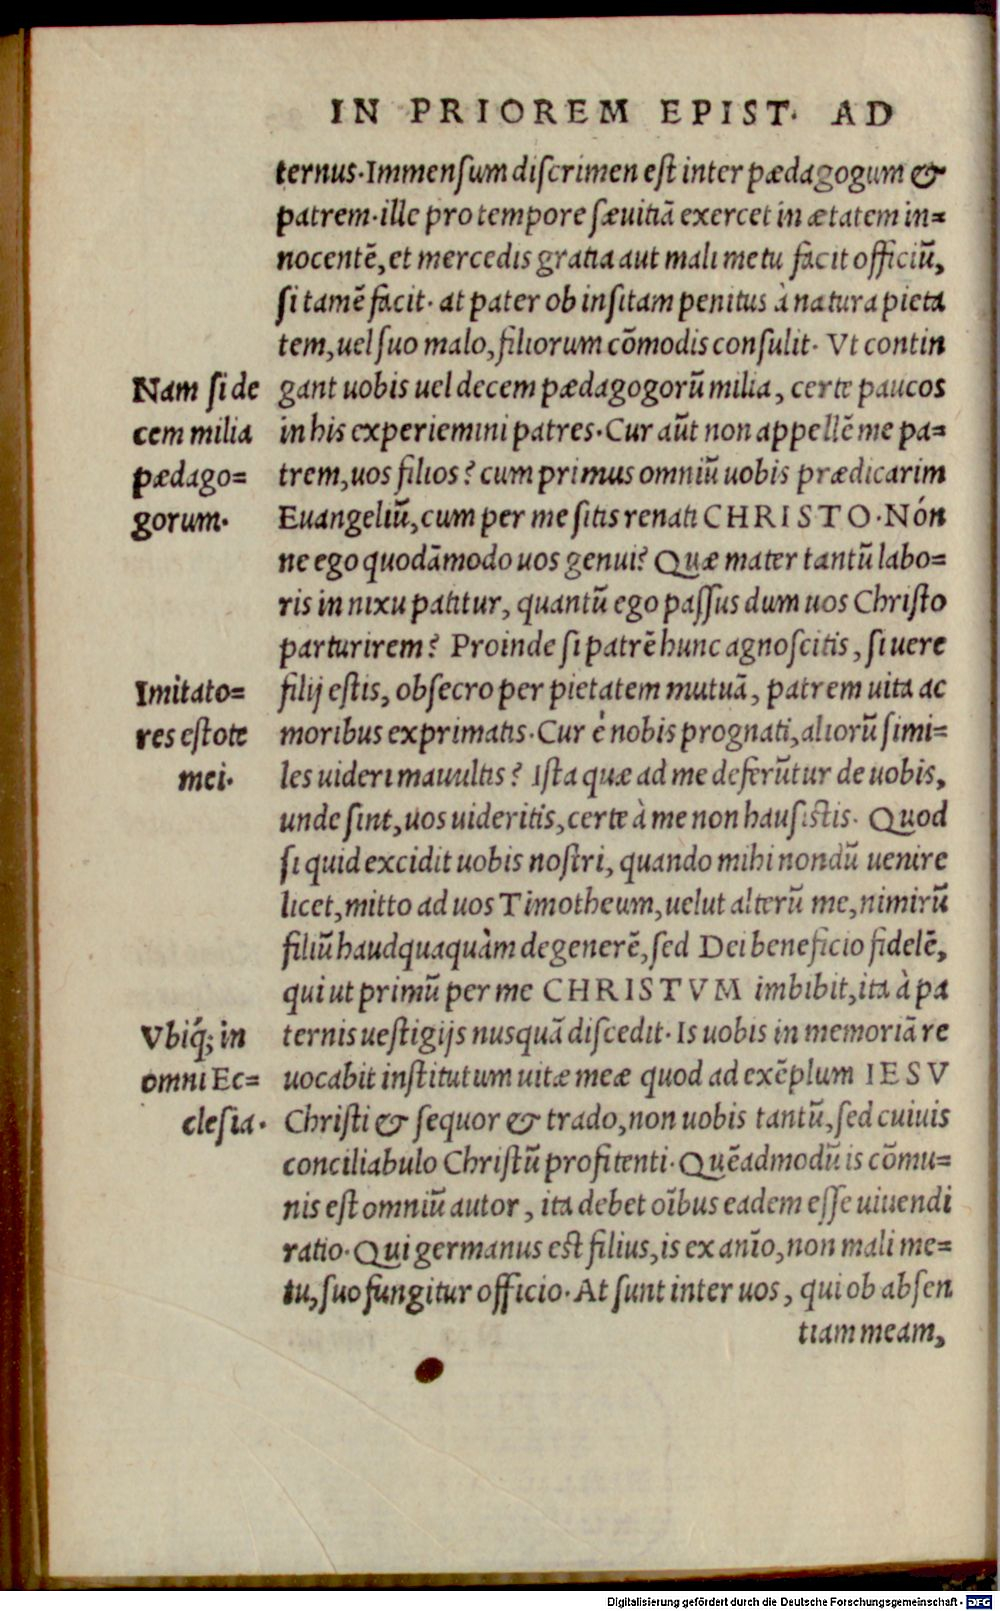 IN PRIOREM EPIST. AD
ternus. Immensum discrimen est inter pædagogum &
patrem. ille pro tempore sæuitiā exercet in ætatem in=
nocentē, et mercedis gratia aut mali metu facit officiū,
si tamē facit. at pater ob insitam penitus à natura pieta
tem, uel suo malo, filiorum cōmodis consulit. Vt contin
Nam si de
cem milia
pædago=
gorum.
gant uobis uel decem pædagogorū milia, certe paucos
in his experiemini patres. Cur aūt non appellē me pa=
trem, uos filios? cum primus omniū uobis prædicarim
Euangeliū, cum per me sitis renati CHRISTO. Nón
ne ego quodāmodo uos genui? Quæ mater tantū labo=
ris in nixu patitur, quantū ego passus dum uos Christo
parturirem? Proinde si patrē hunc agnoscitis, si uere
Imitato=
res estote
mei.
filij estis, obsecro per pietatem mutuā, patrem uita ac
moribus exprimatis. Cur è nobis prognati, aliorū simi=
les uideri mauultis? Ista quæ ad me deferūtur de uobis,
unde sint, uos uideritis, certe à me non hausistis. Quod
si quid excidit uobis nostri, quando mihi nondū uenire
licet, mitto ad uos Timotheum, uelut alterū me, nimirū
filiū haudquaquàm degenerē, sed Dei beneficio fidelē,
qui ut primū per me CHRISTVM imbibit, ita à pa
Vbiq́; in
omni Ec=
clesia.
ternis uestigijs nusquā discedit. Is uobis in memoriā re
uocabit institutum uitæ meæ quod ad exēplum IESV
Christi & sequor & trado, non uobis tantū, sed cuiuis
conciliabulo Christū profitenti. Quēadmodū is cōmu=
nis est omniū autor, ita debet oībus eadem esse uiuendi
ratio. Qui germanus est filius, is ex anīo, non mali me=
tu, suo fungitur officio. At sunt inter uos, qui ob absen
tiam meam,
Digitalisierung gefördert durch die Deutsche Forschungsgemeinschaft - DFG